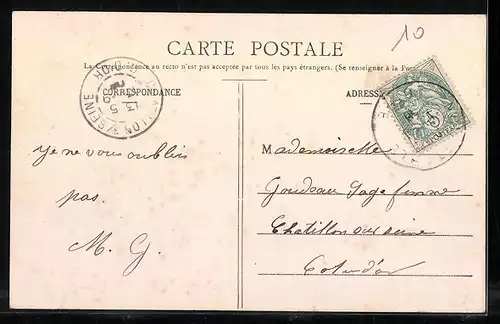 10
CARTE POSTALE
La Correspondance au recto n'est pas acceptée par tous les pays étrangers. (Se renseigner à la Poste
CORRESPONDANCE
ADRESSE
S/SEINE
je ne vous oublie
pas.
M. G.
Mademoiselle
Goudeau Sage femme
Chatillon sur seine
Cote d'or